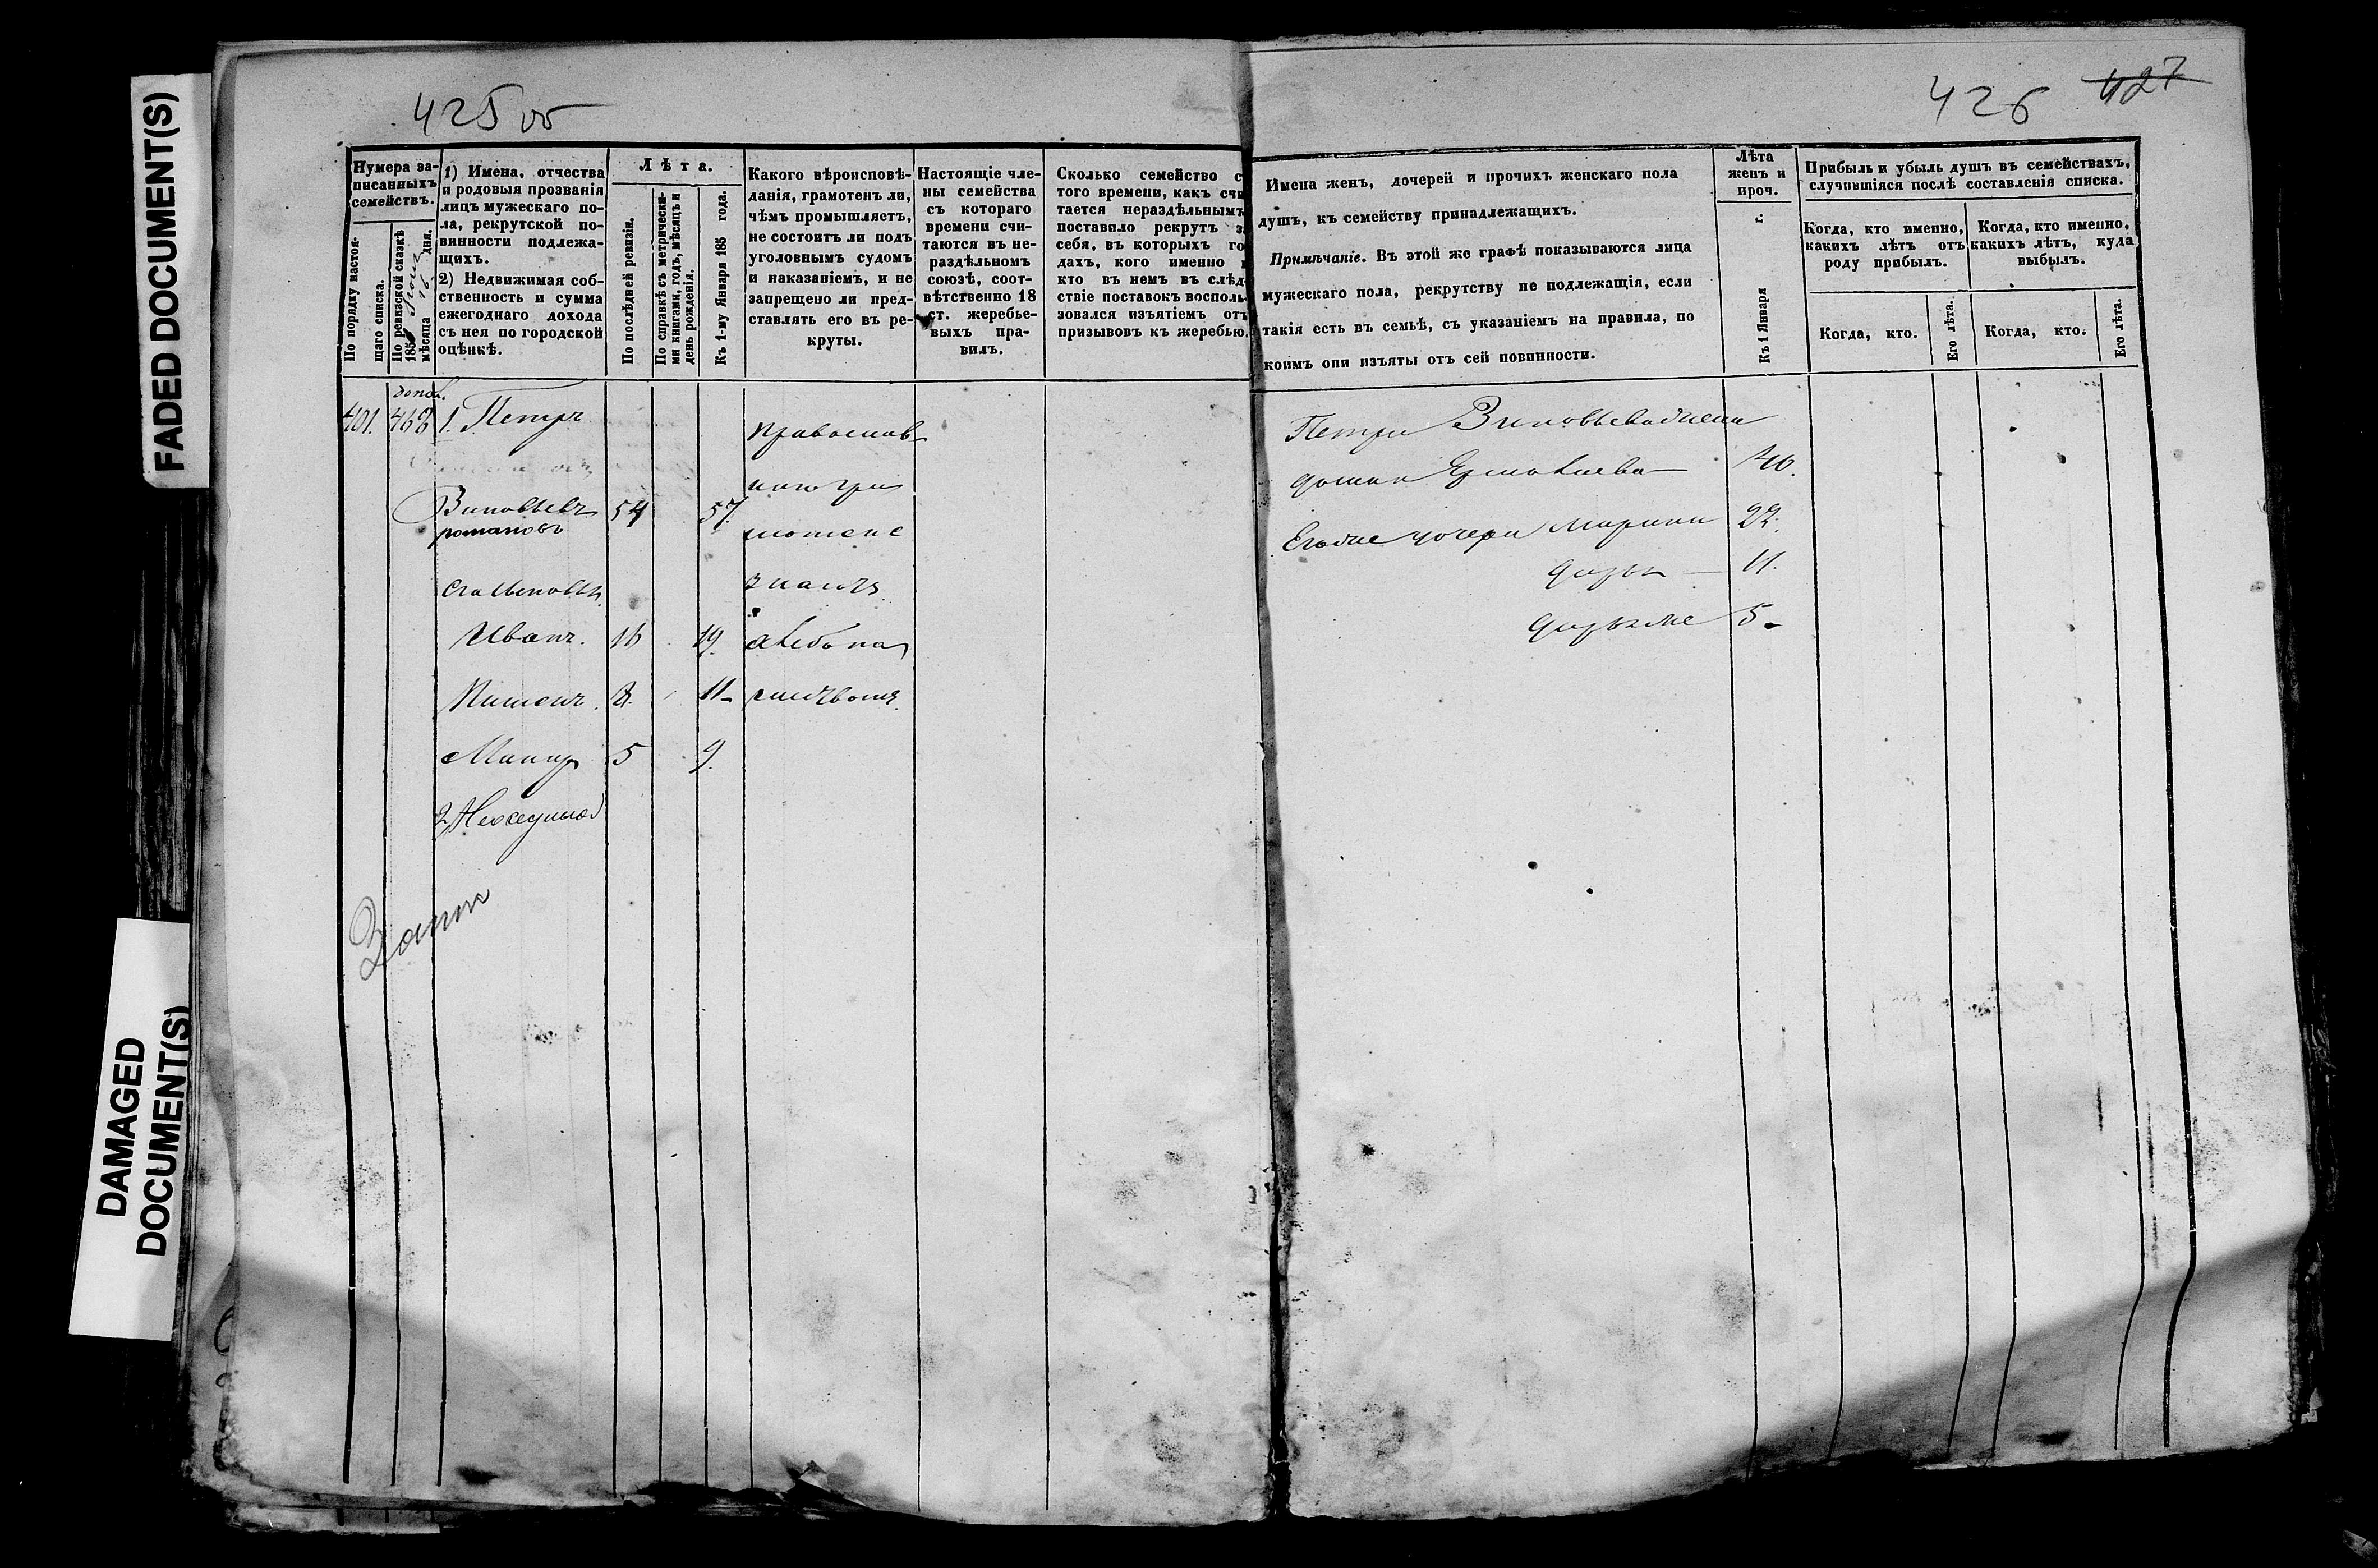 FADED DOCUMENT(S)
DAMAGED
DOCUMENT(S)
425 об
426 427
Нумера за-
писанныхъ
семействъ.
По порядку настоя-
щаго списка.
По ревизской сказкѣ
185
мѣсяца 16 дня.
1) Имена, отчества
и родовыя прозванія
лицъ мужескаго по-
ла, рекрутской по-
винности подлежа-
щихъ.
2) Недвижимая соб-
ственность и сумма
ежегоднаго дохода
съ нея по городской
оцѣнкѣ.
Лѣта.
По послѣдней ревизіи.
По справкѣ съ метрически-
ми книгами, годъ, мѣсяцъ и
день рожденія.
Къ 1-му Января 185 года.
Какого вѣроисповѣ-
данія, грамотенъ ли,
чѣмъ промышляетъ,
не состоитъ ли подъ
уголовнымъ судомъ
и наказаніемъ, и не
запрещено ли пред-
ставлять его въ ре-
круты.
Настоящіе чле-
ны семейства
съ котораго
времени счи-
таются въ не-
раздѣльномъ
союзѣ, соот-
вѣтственно 18
ст. жеребье-
выхъ пра-
вилъ.
Сколько семейство с
того времени, какъ счи
тается нераздѣльнымъ
поставило рекрутъ з
себя, въ которыхъ го
дахъ, кого именно и
кто въ немъ въ слѣд
ствіе поставокъ восполь
зовался изъятіемъ отъ
призывовъ къ жеребью.
Имена женъ, дочерей и прочихъ женскаго пола
душъ, къ семейству принадлежащихъ.
Примѣчаніе. Въ этой же графѣ показываются лица
мужескаго пола, рекрутству не подлежащія, если
такія есть въ семьѣ, съ указаніемъ на правила, по
коимъ они изъяты отъ сей повинности.
Лѣта
женъ и
проч.
Къ 1 Января г.
Прибыль и убыль душъ въ семействахъ,
случившіяся послѣ составленія списка.
Когда, кто именно,
какихъ лѣтъ отъ
роду прибылъ.
Когда, кто именно,
какихъ лѣтъ, куда
выбылъ.
Когда, кто.
Его лѣта.
Когда, кто.
Его лѣта.
401. 468 1. Петръ
Зиновьевъ 54 57
романовъ
Иванъ. 16 19.
Пименъ. 8. 11-
Макар 5 9.
Православ
знаютъ
Петра Зиновьева жена
40.
Его же дочери Марина 22.
Дарья — 11.
Дарья же 5-